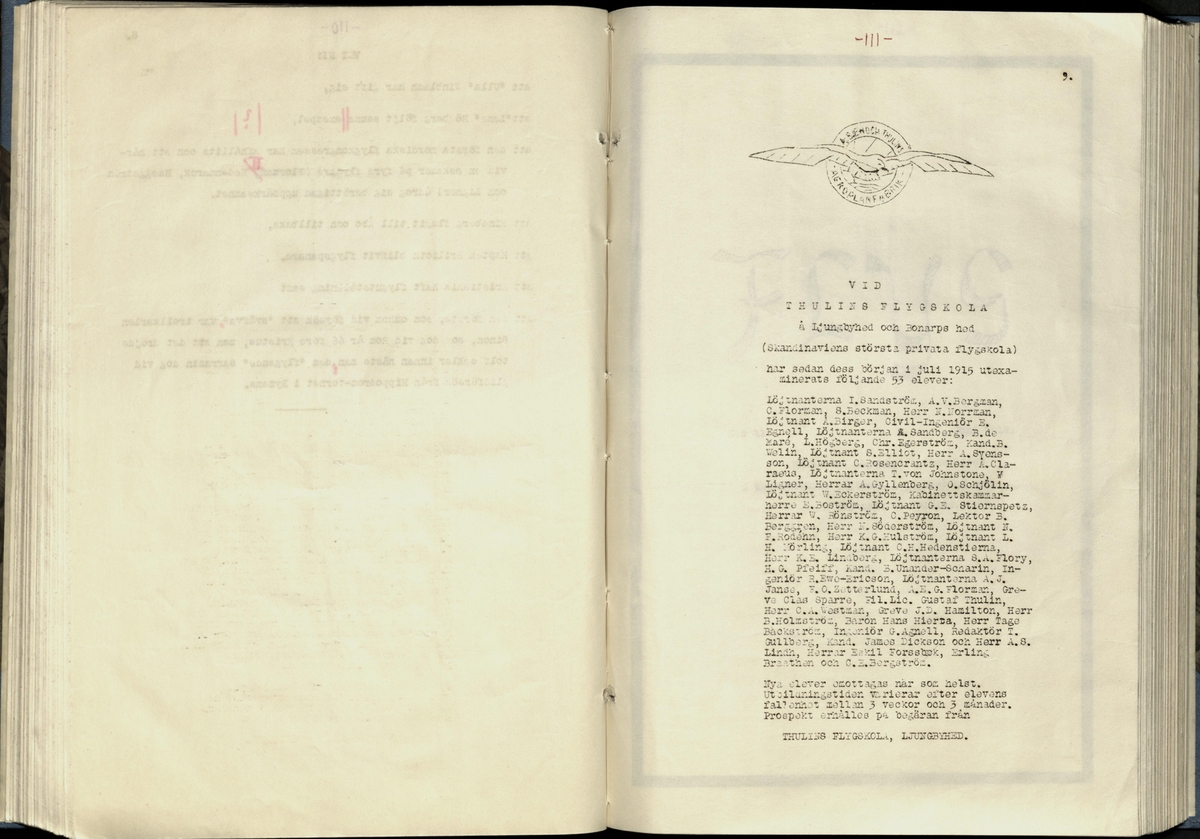 -111-
9.
AEROPLANFABRIK
VID
THULINS FLYGSKOLA
å Ljungbyhed och Bonarps hed
(Skandinaviens största privata flygskola)
har sedan dess början i juli 1915 utexa-
minerats följande 53 elever:
Löjtnanterna I.Sandström, A.V.Bergman,
C.Florman, S.Beckman, Herr N.Norrman,
Löjtnant A.Birger, Civil-Ingeniör E.
Egnell, Löjtnanterna A.Sandberg, B.de
Maré, L.Högberg, Chr.Egerström, Kand.B.
Welin, Löjtnant S.Elliot, Herr A.Svens-
son, Löjtnant C.Rosencrantz, Herr A.Cla-
raeus, Löjtnanterna T.von Johnstone, W
Ligner, Herrar A.Gyllenberg, O.Schjölin,
Löjtnant W.Eckerström, Kabinettskammar-
herre E.Boström, Löjtnant G.E. Stiernspetz,
Herrar W. Rönström, C.Peyron, Lektor B.
Berggren, Herr N.Söderström, Löjtnant N.
F.Rodéhn, Herr K.G.Hulström, Löjtnant L.
H. Nörling, Löjtnant C.H.Hedenstierna,
Herr K.E. Lindberg, Löjtnanterna S.A.Flory,
H.G. Pfeiff, Kand. E.Unander-Scharin, In-
geniör R.Ewe-Ericson, Löjtnanterna A.J.
Janse, F.O.Zetterlund, A.E.G.Florman, Gre-
ve Clas Sparre, Fil.Lic. Gustaf Thulin,
Herr C.A.Westman, Greve J.D. Hamilton, Herr
B.Holmström, Baron Hans Hierta, Herr Tage
Bäckström, Ingeniör G.Agnell, Redaktör T.
Gullberg, Kand. James Dickson och Herr A.S.
Lindh, Herrar Eskil Forssbæk, Erling
Braathen och C.E.Bergström.
Nya elever emottagas när som helst.
Utbildningstiden varierar efter elevens
fallenhet mellan 3 veckor och 3 månader.
Prospekt erhålles på begäran från
THULINS FLYGSKOLA, LJUNGBYHED.